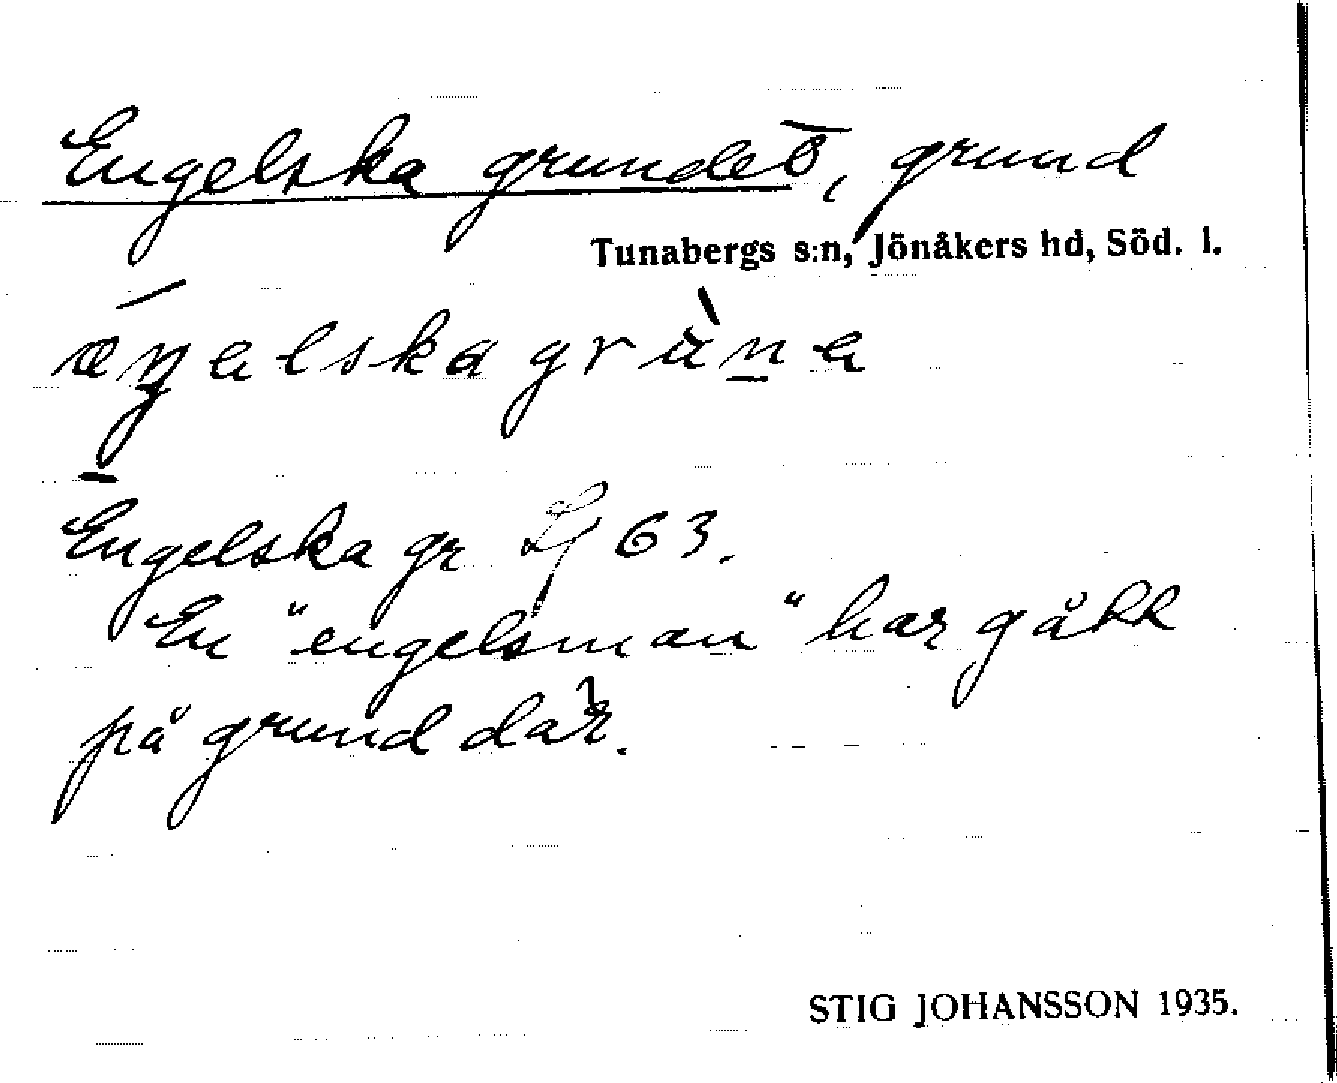 Engelska grundet, grund
Tunabergs s:n, Jönåkers hd, Söd. l.
Engelska gr Lf 63.
En "engelsman" har gått
på grund där.
STIG JOHANSSON 1935.